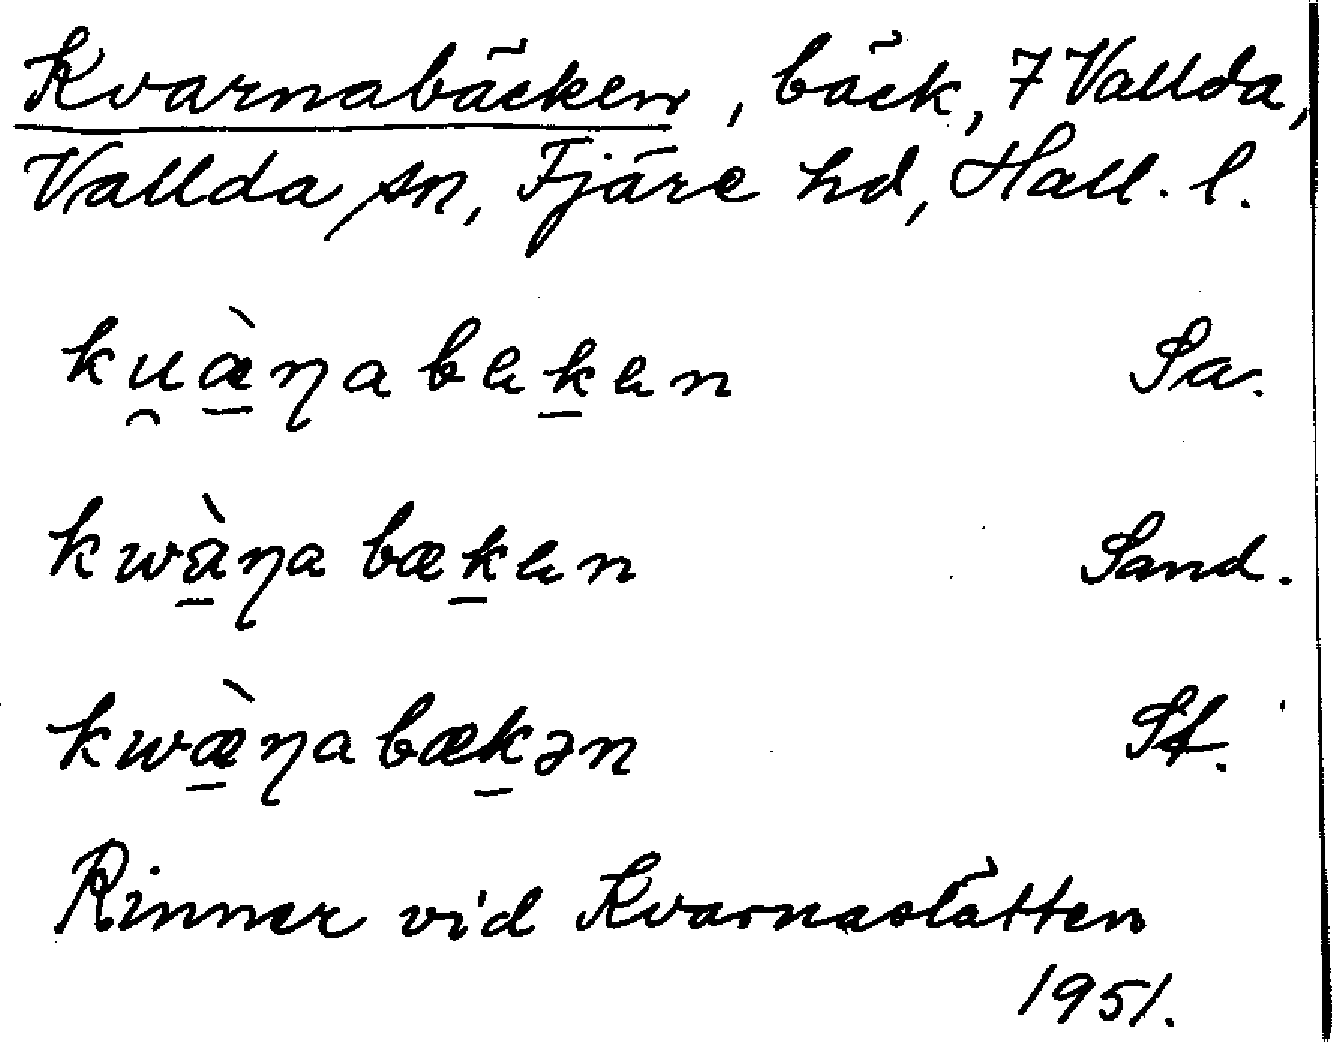 Kvarnabäcken, bäck, 7 Vallda,
Vallda sn, Fjäre hd, Hall. l.
ku̯æ̱̀ꞃa bek̠en Sa.
kwà̱ꞃa bæk̠en Sand.
kwæ̱̀ꞃabæk̠ən Sf.
Rinner vid Kvarnaslätten
1951.